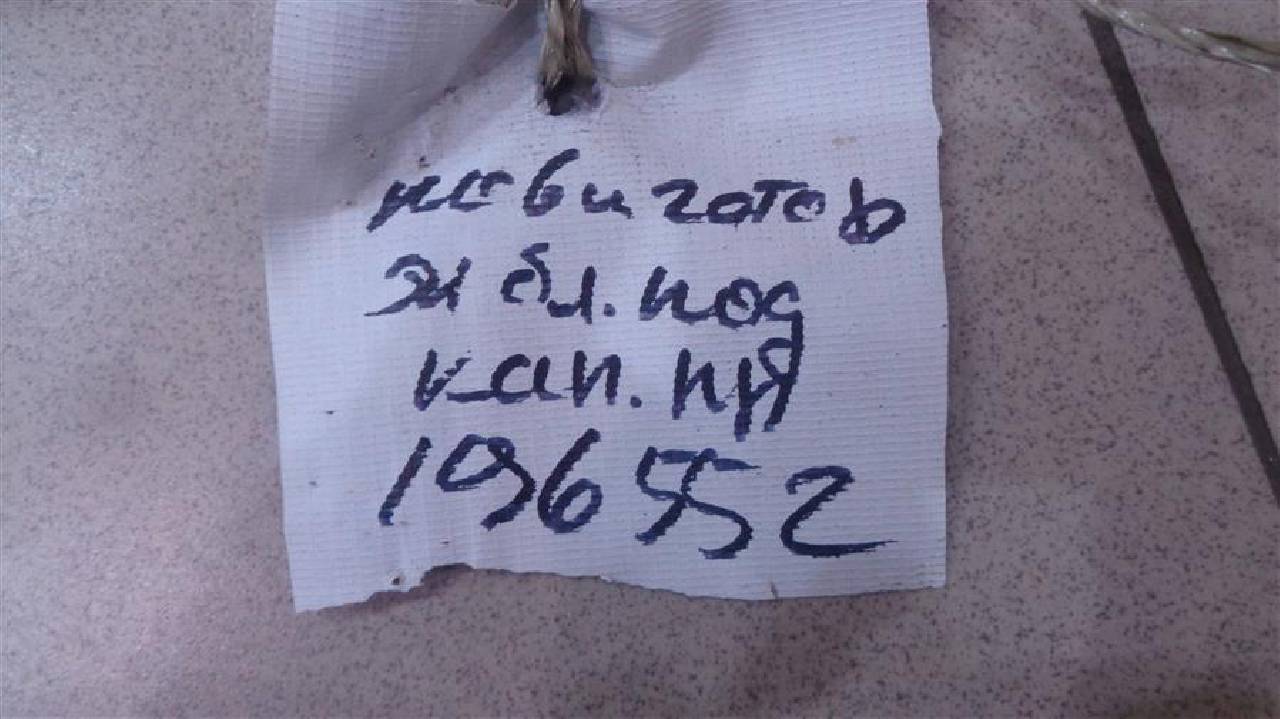 навиготор
эл бл. под
кап. пр
196552